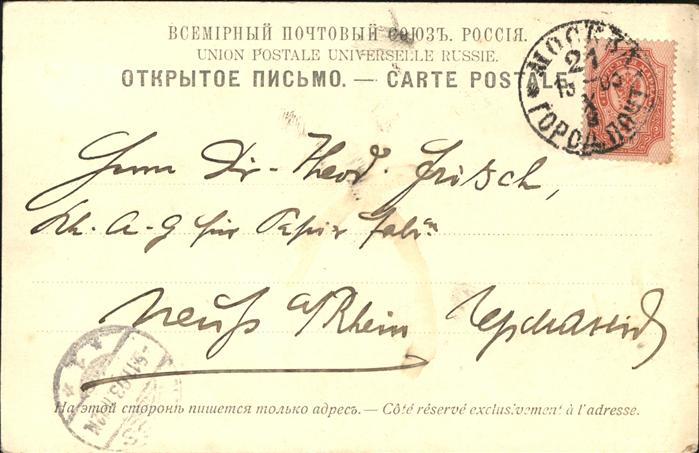 ВСЕМІРНЫЙ ПОЧТОВЫЙ СОЮЗЪ. РОССІЯ.
UNION POSTALE UNIVERSELLE RUSSIE.
ОТКРЫТОЕ ПИСЬМО. — CARTE POSTALE.
МОСКВА
21
ГОРОД. ПОЧТ
Herrn Dir. Theod. Frisch,
A-G für Papier fabr
Neuß a/Rhein Германія
На этой сторонѣ пишется только адресъ. — Côté réservé exclusivement à l'adresse.